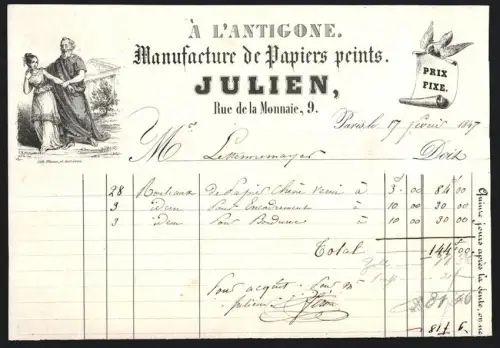 À L'ANTIGONE.
Manufacture de Papiers peints.
JULIEN,
Rue de la Monnaie, 9.
PRIX
FIXE.
Paris le 17 février 1847
Mr
Doit
28 Rouleaux de Papier Chêne Verni à 3 00 84 00
3 idem Pour Encadrement à 10 00 30 00
3 idem Pour Bordure à 10 00 30 00
Total 144 00
Pour acquit
julien
Quinze jours après la vente, on ne